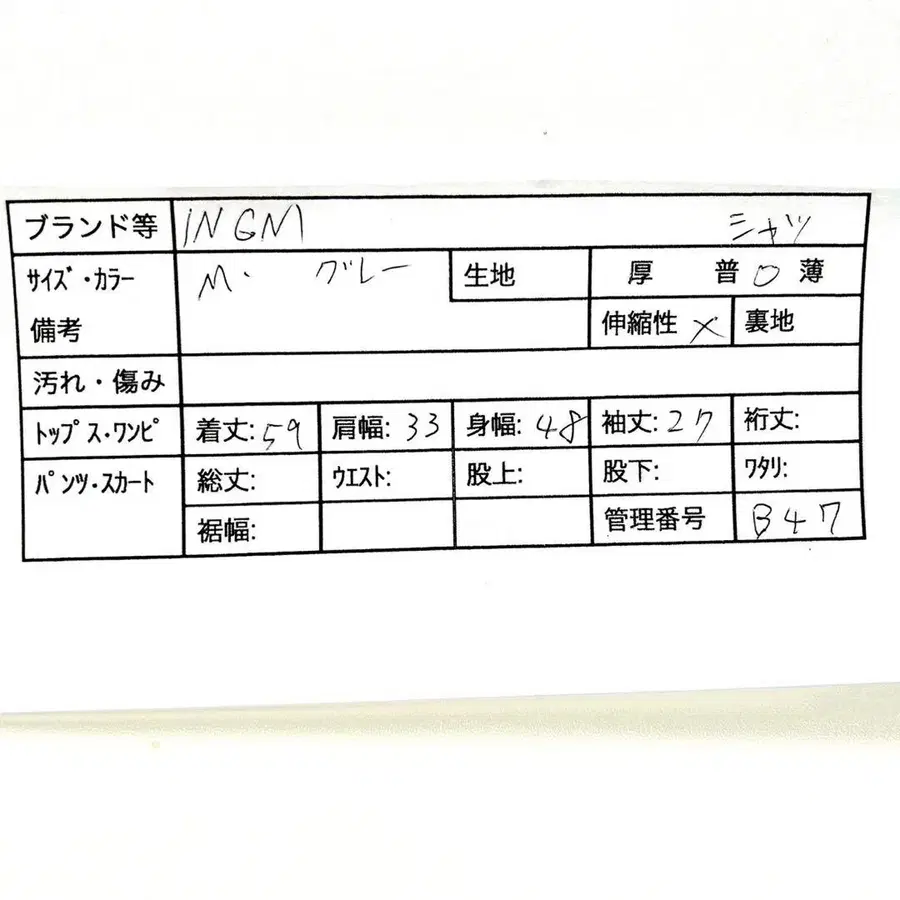 ブランド等 INGNI シャツ
サイズ・カラー M・ グレー 生地 厚 普 ○ 薄
備考 伸縮性 × 裏地
汚れ・傷み
トップス・ワンピ 着丈:59 肩幅:33 身幅:48 袖丈:27 裄丈:
パンツ・スカート 総丈: ウエスト: 股上: 股下: ワタリ:
裾幅: 管理番号 B47